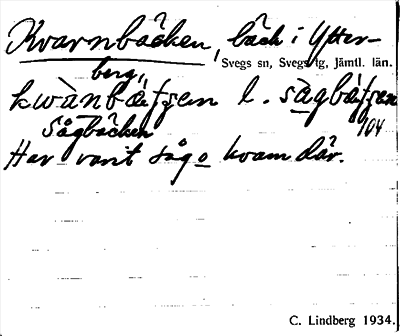 Kvarnbäcken, bäck i Ytter-
berg,, Svegs sn, Svegs tg, Jämtl. län.
kwànbätʃen l. sàgbätʃen
Sågbäcken 104
Har varit såg o kvarn där.
C. Lindberg 1934.